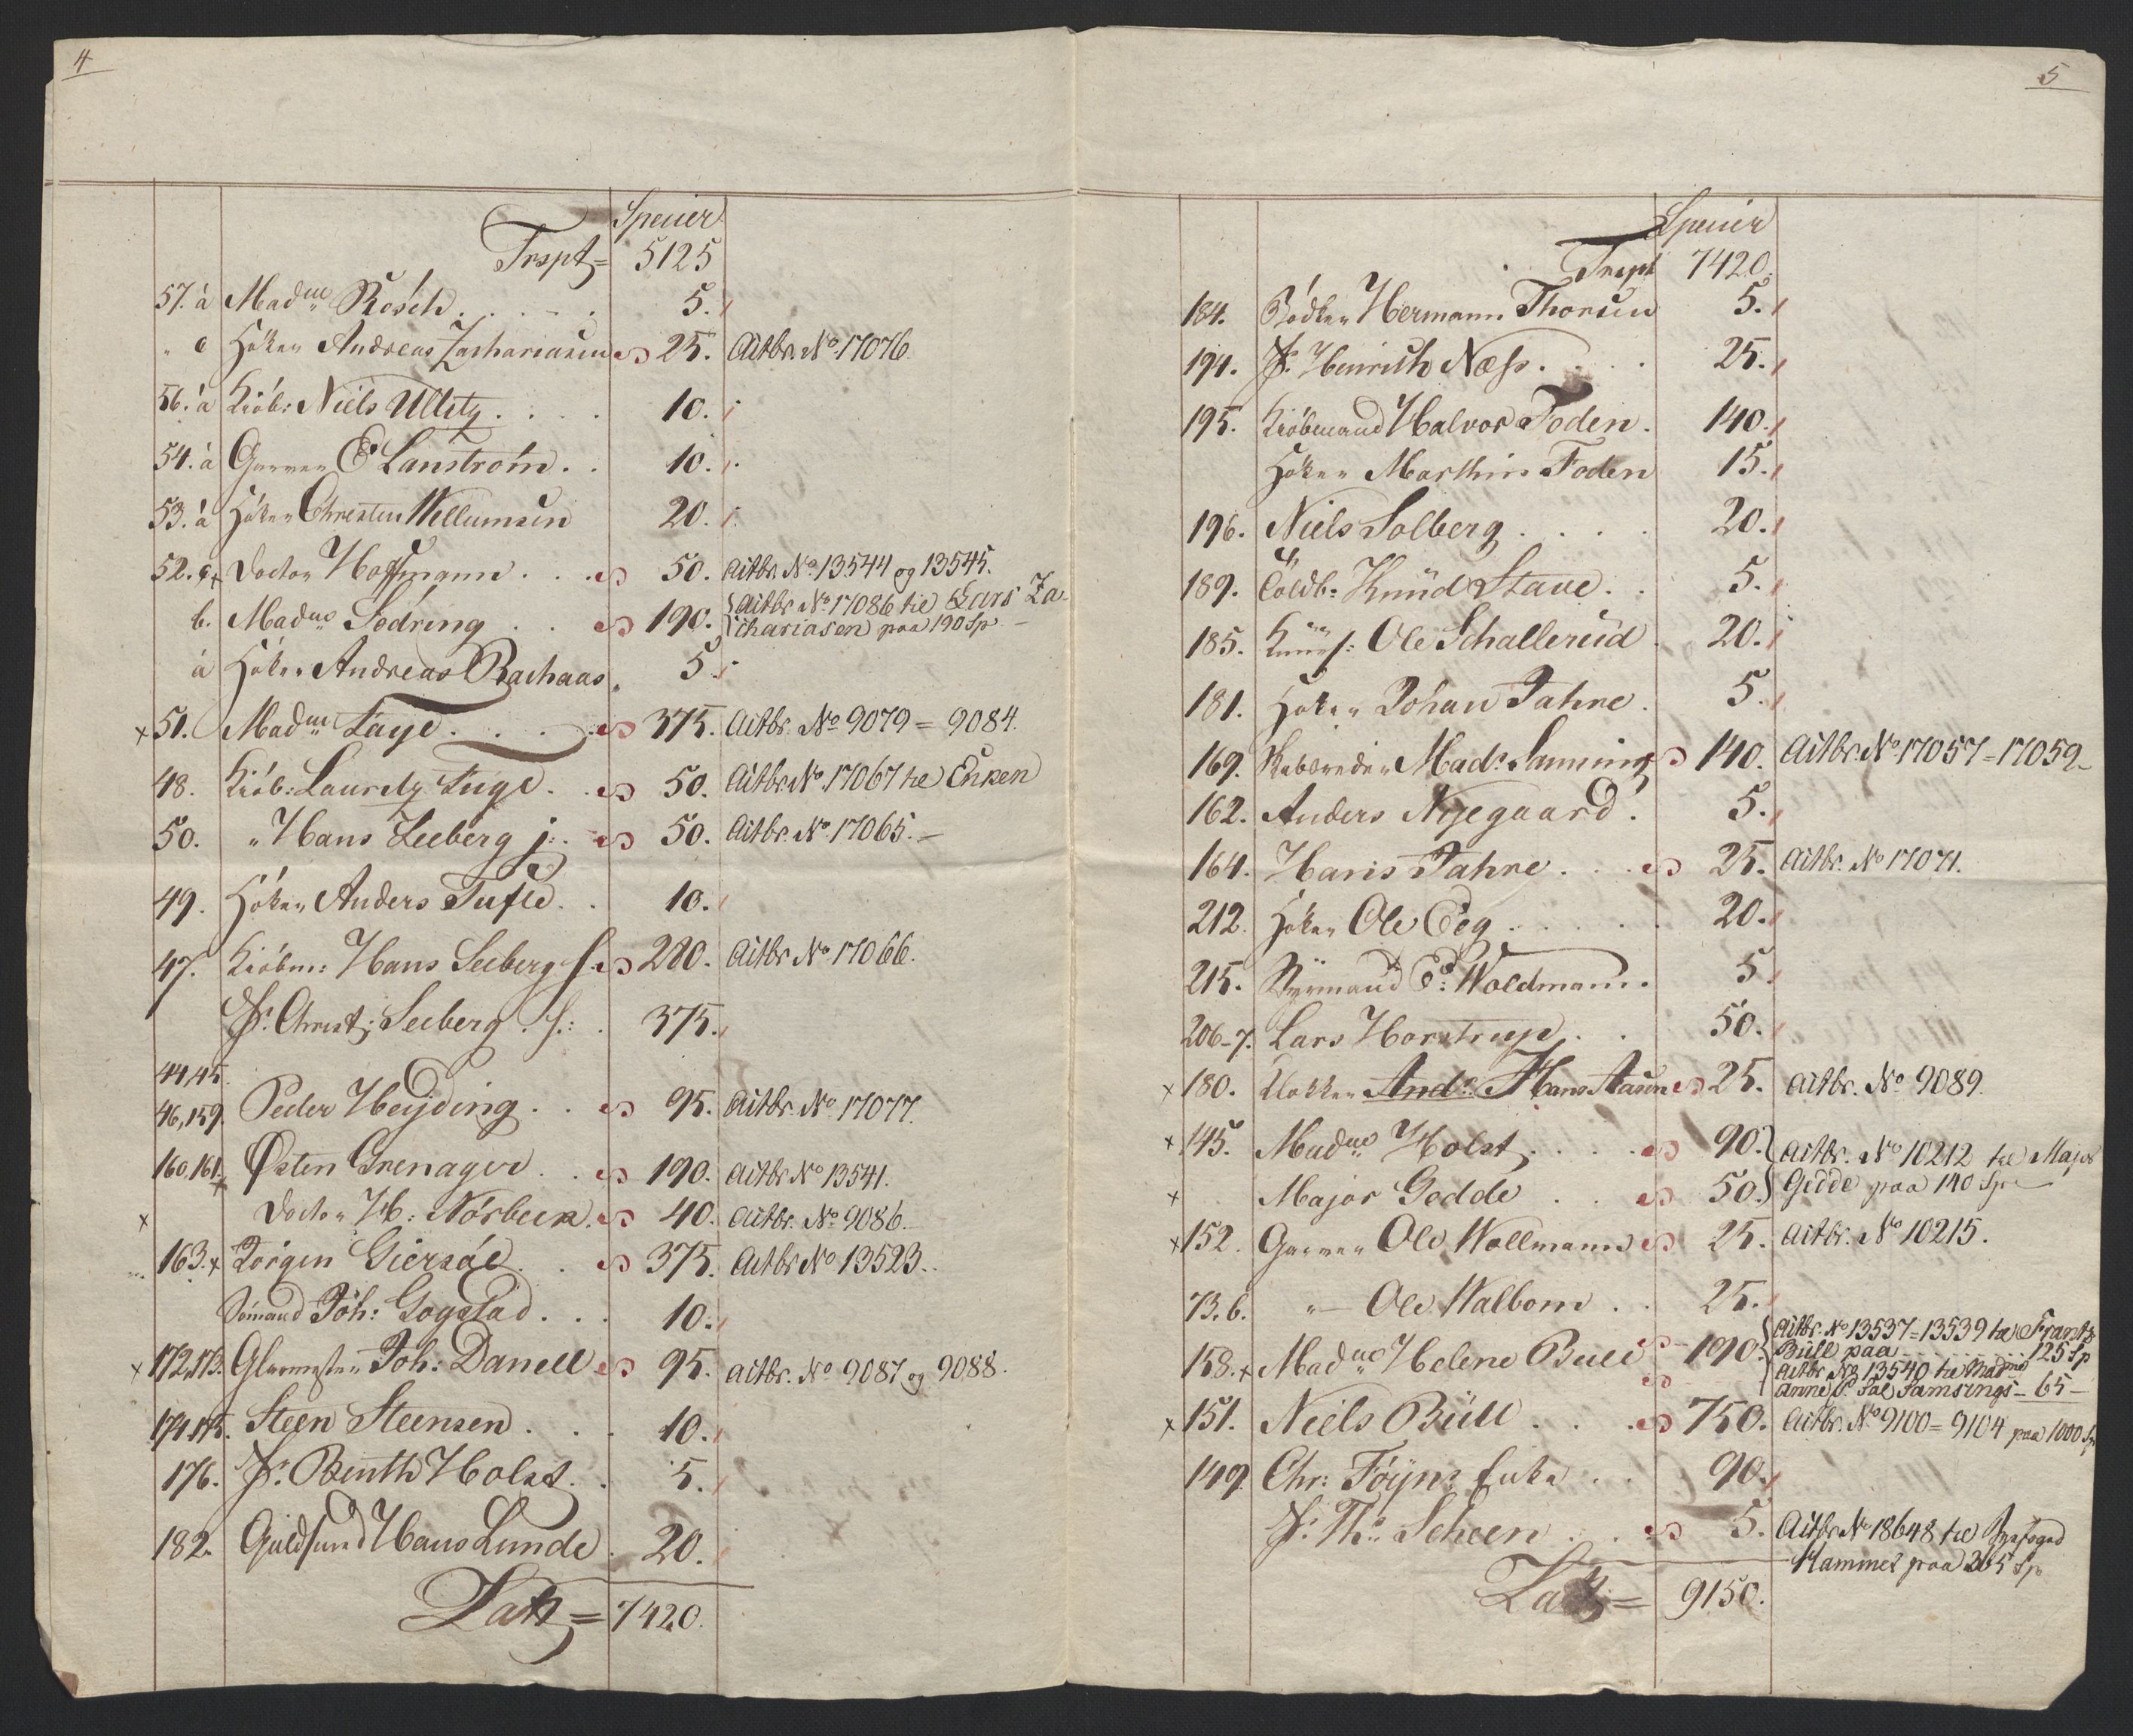 4
Specier
Trspt = 5125
57. a Madme Rosch . . . . . 5.
" c Höker Andreas Zachariasen 25. Actbr. No. 17076.
56. a Kiöb: Niels Ullitz . . . . 10.
54. a Garver E Lanström . . 10.
53. a Höker Christen Willumsen 20.
52. c + Doctor Hoffmann . . . 50. Actbr. No. 13544 og 13545.
b. Madme Sedring . . 190. Actbr. No. 17086 til Lars Za-
chariasen paa 190 Sp. —
a Höker Andreas Bachaas. 5.
+ 51. Madme Faye . . . . 375. Actbr. No 9079 = 9084.
48. Kiöb: Lauritz Fuge . . 50. Actbr. No. 17067 til Enken
50. " Hans Seeberg j: . 50. Actbr. No. 17065. —
49. Höker Anders Tufte . . 10.
47. Kiöbm: Hans Seeberg S. 280. Actbr. No. 17066.
Hr. Christ: Seeberg . S.: . 375.
44,45.
46,159. Peder Heyding . . 95. Actbr. No. 17077.
160,161. + Østen Grenager . . 190. Actbr. No 13541.
+ Doctor H: Nörbeck . 40. Actbr. No. 9086.
163. + Jörgen Giersöe . . 375. Actbr. No 13523.
Sömand Joh: Gogstad . . . 10.
+ 172,173. Glarmester Joh: Danell 95. Actbr. No 9087 og 9088.
174,175. Steen Steensen . . . 10.
176. Hr. Benth Holst . . 5.
182. Guldsmed Hans Lunde . 20.
Lats = 7420.
5
Specier
Trspt 7420.
184. Bödker Hermann Thorsen 5.
194. Hr. Heinrich Næss . . . . 25.
195. Kiöbmand Halvor Foden . 140.
Höker Marthin Foden 15.
196. Niels Solberg . . . . 20.
189. Toldb: Knud Stave . . 5.
185. Ole Schallerud . 20.
181. Höker Johan Jahre . 5.
169. Rebsreder Mads Lanning 140. Actbr. No 17057 = 17059 —
162. Anders Nyegaard . 5.
164. Hans Jahre . . . 25. Actbr. No 17071.
212. Höker Ole Eeg . . . . . 20.
215. Styrmand E: Woldmann . 5.
206-7. Lars Horstrup . . 50.
+ 180. Klokker And: Hans Aasen 25. Actbr. No 9089.
+ 145. Madme Holst . . . . 90. Actbr. No 10212 til Major
+ Major Gedde . . 50. Güde paa 140 Spe
+ 152. Garver Ole Wollmann 25. Actbr. No 10215.
73. b. " — Ole Walbom . . 25.
158. + Madme Helene Bull 190. Actbr. No 13537 = 13539 til Frantz
Bull paa . . . . . . 125 Sp
Actbr. No 13540 til Madme
Anne S. Samsings — 65 —
+ 151. Niels Büll . . . 750. Actbr. No 9100 = 9104 paa 1000 Sp
149. Chr: Föyns Enke . . 90.
Hr. Th: Scheen . . 5. Actbr No 18648 til
Hammer paa 365 Sp
Lats = 9150.